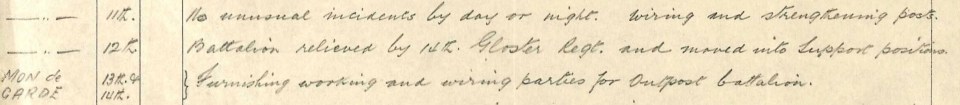 —〃— 11th. No unusual incidents by day or night. Wiring and strengthening posts.
—〃— 12th. Battalion relieved by 14th. Gloster Regt. and moved into Support positions.
MON de 13th. & } Furnishing working and wiring parties for Outpost battalion.
GARDE 14th.